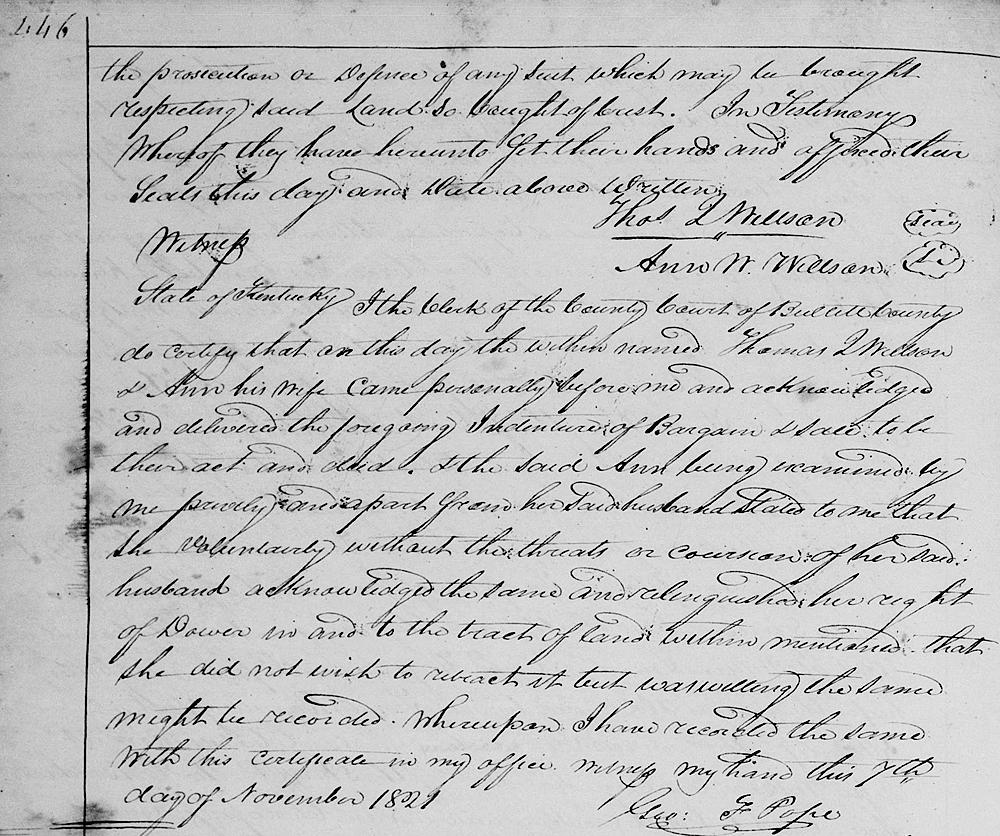 446
the prosecution or Defence of any Suit which may be brought
respecting said Land so bought of Crist. In Testimony
Whereof they have hereunto Set their hands and affixed their
Seals this day and Date above Written
Thos. Q Willson Seal
Witness
Ann W. Willson
State of Kentucky I the Clerk of the County Court of Bullitt County
do certify that on this day the within named Thomas Q Willson
& Ann his wife Came personally before me and acknowledged
and delivered the foregoing Indenture of Bargain & sale to be
their act and deed. & the said Ann being examined by
me privily and apart from her Said husband Stated to me that
she Voluntarily without the threats or coursion of her said
husband acknowledged the same and relinquished her right
of Dower in and to the tract of land within mentioned that
she did not wish to retract it but was willing the same
might be recorded. Whereupon I have recorded the same
With this certificate in my office. Witness my hand this 7th
day of November 1821
Geo: F Pope